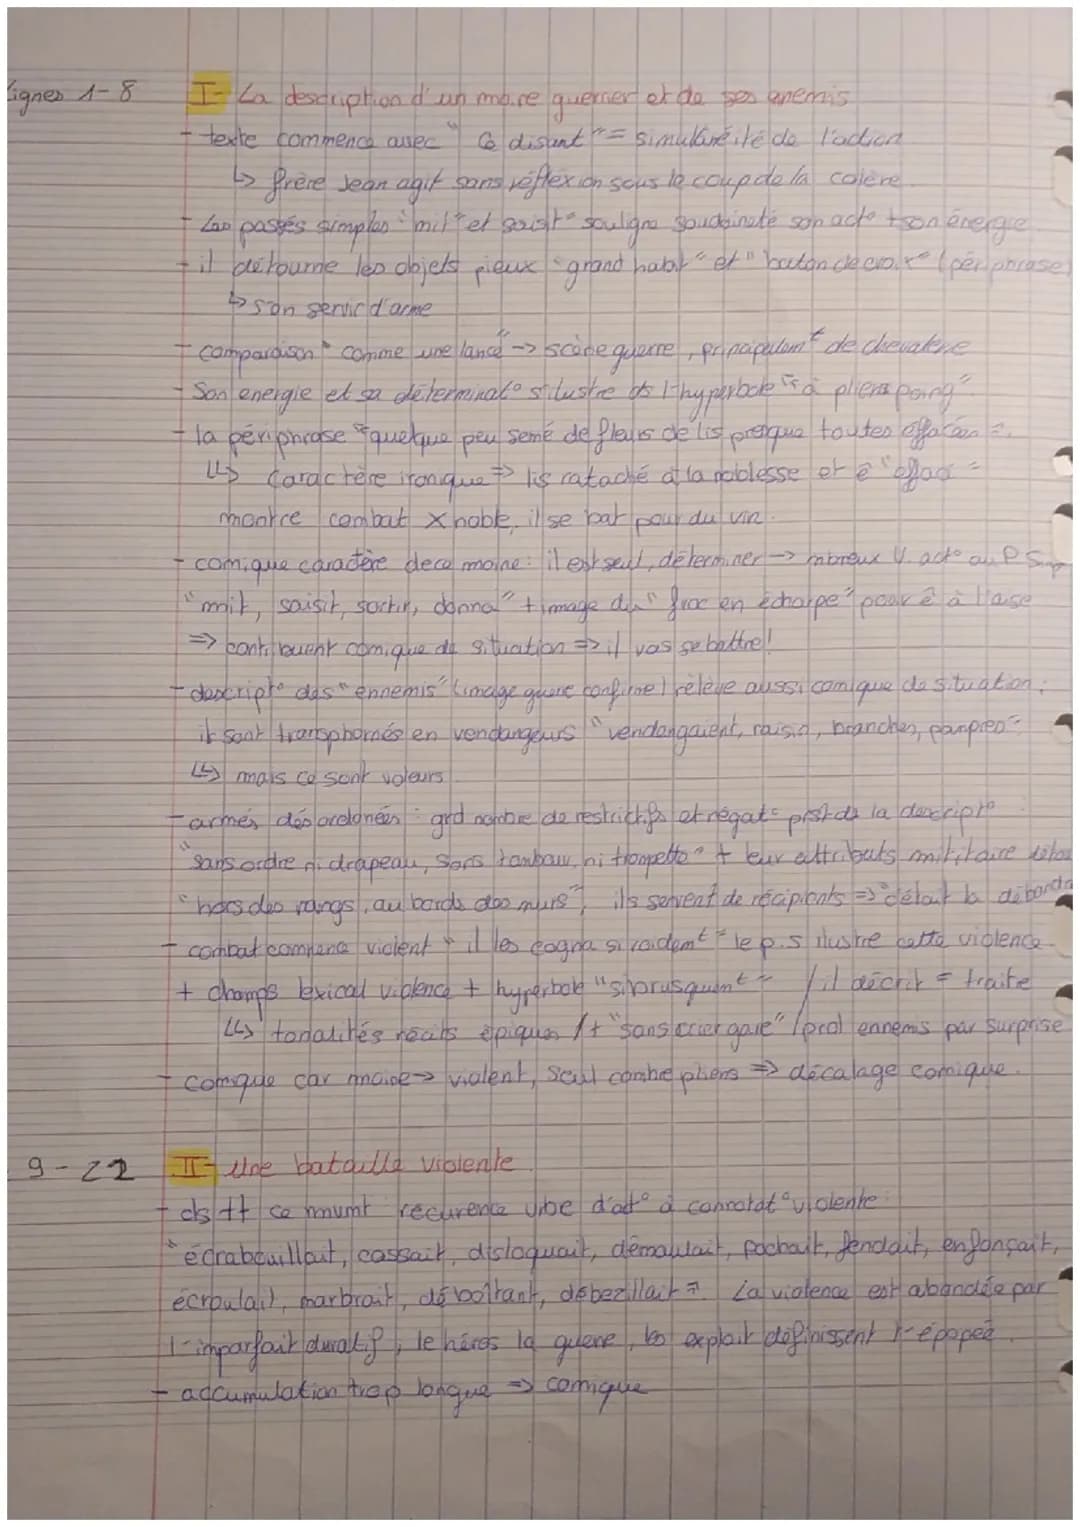 Lignes 1-8
I- La description d'un moine guerrier et de ses enemis
- texte commence avec "Ce disant" = simultanéité de l'action
↳ frère Jean agit sans réflexion sous le coup de la colère.
- Les passés simples "mit" et saisit" souligne soudaineté son acte + son énergie
- il détourne les objets pieux "grand habit" et "baton de croix" (périphrase)
↳ s'en servir d'arme
- comparaison "comme une lance" → scène guerre, principalemt de chevalerie
- Son energie et sa déterminat° s'ilustre ds l'hyperbole "à pleins poing"
- la périphrase "quelque peu semé de fleurs de lis presque toutes effacées".
↳ Caractère ironique ⇒ lis rataché à la noblesse et ê "effacé"
montre combat X noble, il se bat pour du vin.
- comique caractère de ce moine : il est seul, déterminer → nbreux V. act° au P Simp
"mit, saisit, sortir, donna" + image du "froc en écharpe" pour ê à l'aise
⇒ contribuent comique de situation ⇒ il vas se battre!
- descript° des "ennemis" (image guerre confirme) relève aussi comique de situation :
ils sont transphormés en vendangeurs "vendangaient, raisin, branches, pampres"
↳ mais ce sont voleurs
- armés désordonnées : grd nombre de restrictifs et négat° prst ds la descript°
"sans ordre ni drapeau, sans tambour, ni trompette" + leur attributs militaire
"hors des rangs, au bords des murs", ils servent de récipients ⇒ "c'était la
- combat commence violent "il les cogna si raidemt" le p.s ilustre cette violence
+ champs lexical violence + hyperbole "si brusquemt" / il décrit = traite
↳ tonalités récits épiques / + "sans crier gare" (pro) ennemis par surprise
- comique car moine → violent, seul contre pliens ⇒ décalage comique.
9-22
II- Une bataille violente
- ds tt ce mvmt récurence vrbe d'act° à connotat° violente :
"écrabouillait, cassait, disloquait, démoulait, pochait, fendait, enfonçait,
écroulait, marbrait, déboîtant, débezillait". La violence est abondée par
l'imparfait duratif, le héros la guerre, les exploit définissent l'épopée.
- accumulation trop longue ⇒ comique